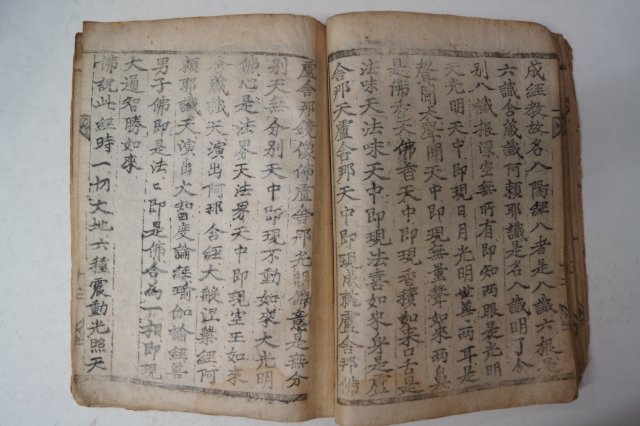 成經教故名八陽經八者是八識六根是
六識含藏識阿頼耶識是名八識明了分
別八識根源空無所有即知兩眼是光明
天光明天中即現日月光明世尊兩耳是
聲聞天聲聞天中即現無量聲如來兩鼻
是佛香天佛香天中即現香積如來口舌是
法味天法味天中即現法喜如來身是盧
舍那天盧舍那天中即現成就盧舍那佛
盧舍那鏡像佛盧舍那光明佛意是無分
別天無分別天中即現不動如來大光明
佛心是法界天法界天中即現空王如來
含藏識天演出阿那含經大般涅槃經阿
頼耶識天演出大智度論經瑜伽論經善
男子佛即是法〻即是佛合為一相即現
大通智勝如來
佛說此經時一切大地六種震動光照天